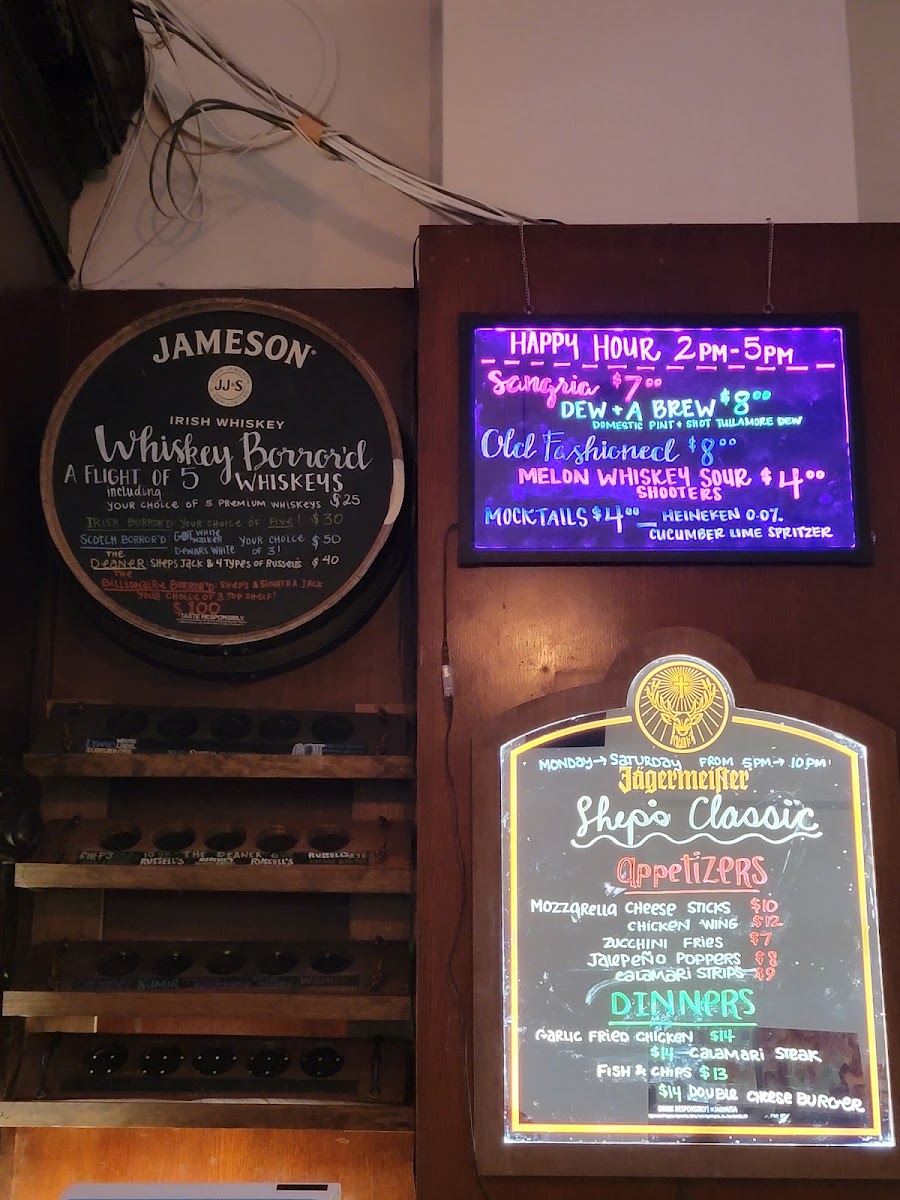 JAMESON
JJ&S
IRISH WHISKEY
Whiskey Borror'd
A FLIGHT OF 5 WHISKEYS
including...
YOUR CHOICE OF 5 PREMIUM WHISKEYS $25
IRISH BORROR'D: YOUR CHOICE OF FIVE! $30
SCOTCH BORROR'D: GOT, WHITE WALKER DEWAR'S WHITE YOUR CHOICE OF 3! $50
THE DEANER SHEPS JACK & 4 TYPES OF RUSSELL'S $40
THE BILLIONAIRE BORROR'D: SHEP'S & SINATRA JACK
YOUR CHOICE OF 3 TOP SHELF!
$100
TASTE RESPONSIBLY.
HAPPY HOUR 2PM-5PM
Sangria $7.00
DEW + A BREW $8.00
DOMESTIC PINT + SHOT TULLAMORE DEW
Old Fashioned $8.00
MELON WHISKEY SOUR $4.00
SHOOTERS
MOCKTAILS $4.00 HEINEKEN 0.0%
CUCUMBER LIME SPRITZER
MONDAY→SATURDAY FROM 5PM→10PM
Jägermeister
Shep's Classic
APPETIZERS
MOZZARELLA CHEESE STICKS $10
CHICKEN WING $12
ZUCCHINI FRIES $7
JALEPEÑO POPPERS $8
CALAMARI STRIPS $9
DINNERS
GARLIC FRIED CHICKEN $14
$14 CALAMARI STEAK
FISH & CHIPS $13
$14 DOUBLE CHEESE BURGER
DRINK RESPONSIBLY
SHEP'S
THE DEANER
RUSSELL'S
RUSSELL'S
RUSSELL'S RYE